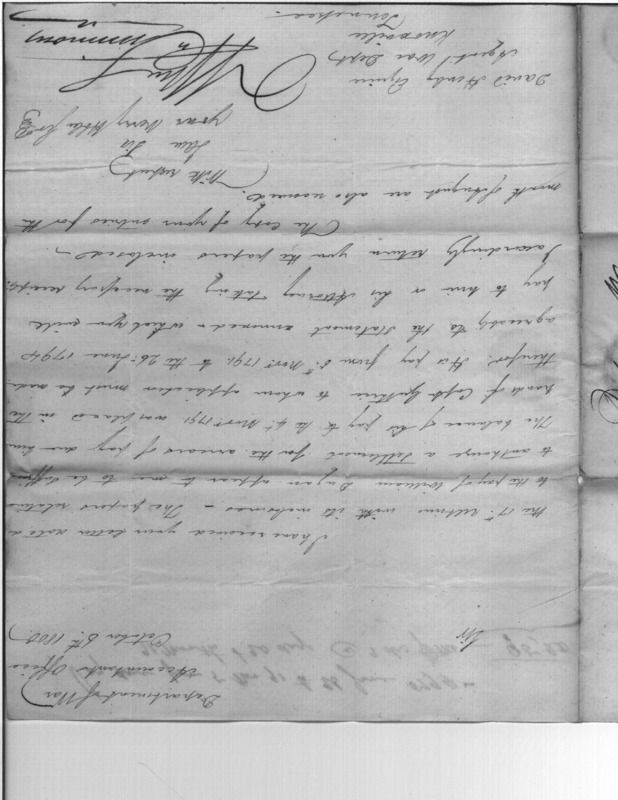 Department of War
Accountants Office
October 6th 1800.
Sir
I have received your letter dated
the 17th Ultimo with its inclosures – The papers relative
to the pay of William Dugan appear to me to be
to authorize a settlement for the arrears of pay due him
The balance of his pay to the 4th Novr 1791 was placed in the
hands of Capt Guthrie to whom application must be made
therefor. His pay from 5th Novr 1791 to the 26 June 1794
agreeably to the statement annexed & which you will
pay to him or his Attorney taking the necessary receipts.
I accordingly return you the papers inclosed –
The copy of your entries for the
month of August are also received.
With respect
I am Sir
your very Hble
Wm Simmons
David Henley Esquire
Agent War Dept
Knoxville
Tennessee